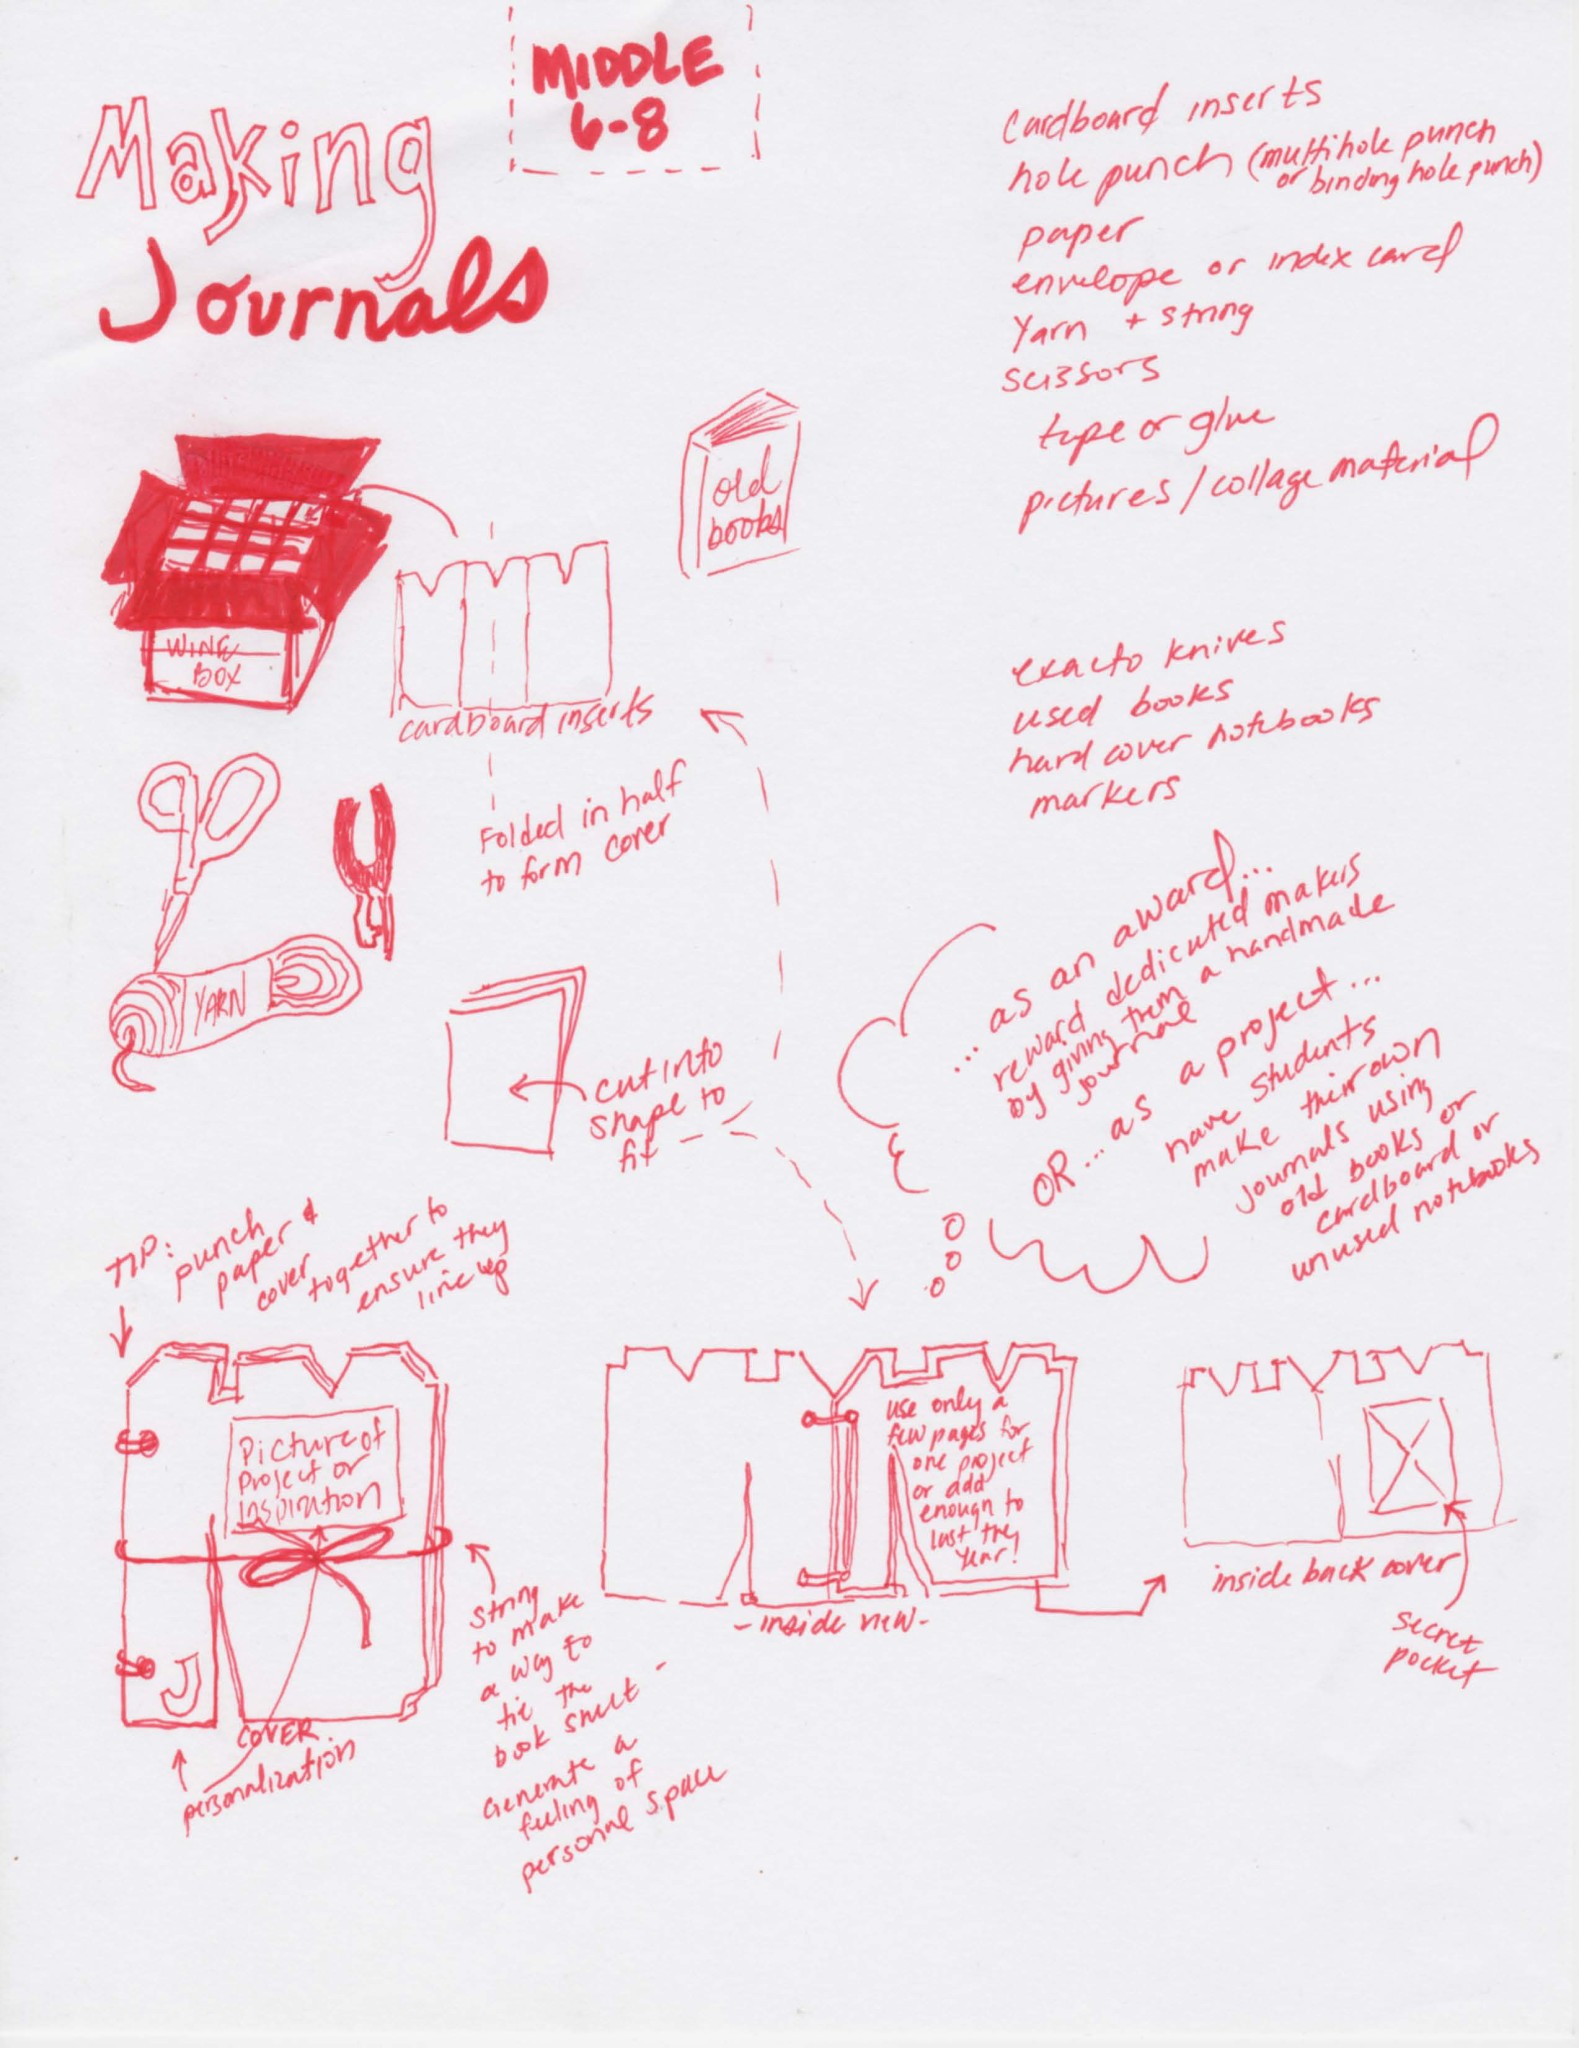 MIDDLE
6-8
Making
Journals
cardboard inserts
hole punch (multihole punch
or binding hole punch)
paper
envelope or index card
Yarn + string
scissors
tape or glue
pictures / collage material
old
books
WINE
BOX
cardboard inserts
exacto knives
used books
hard cover notebooks
markers
Folded in half
to form cover
YARN
cut into
shape to
fit
... as an award...
reward dedicated makers
by giving them a handmade
journal
OR... as a project...
have students
make their own
journals using
old books or
cardboard or
unused notebooks
TIP: punch
paper &
cover
together to
ensure they
line up
Picture of
project or
inspiration
J
COVER
personalization
String
to make
a way to
tie the
book shut -
Generate a
feeling of
personal space
use only a
few pages for
one project
or add
enough to
last the
year!
- inside view -
inside back cover
secret
pocket